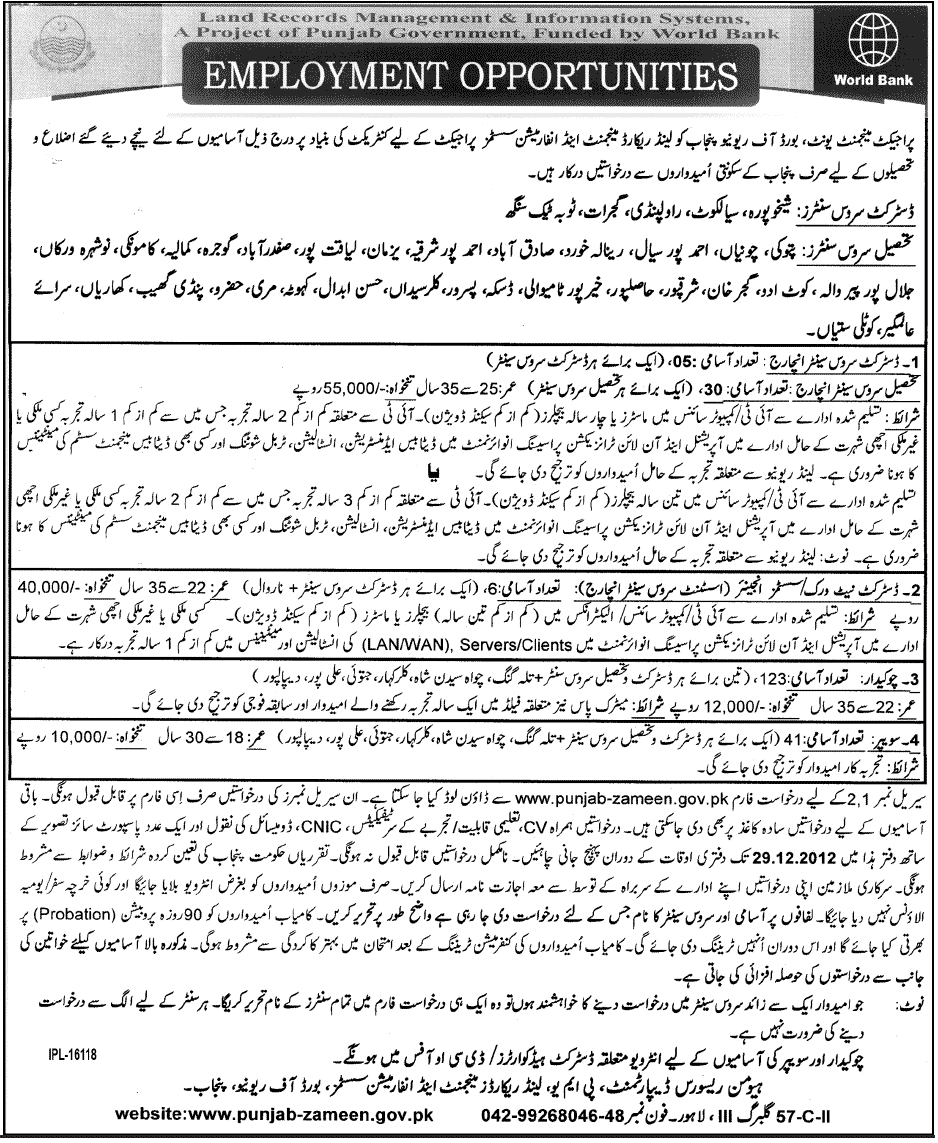 Land Records Management & Information Systems,
A Project of Punjab Government, Funded by World Bank
EMPLOYMENT OPPORTUNITIES
World Bank
پراجیکٹ مینجمنٹ یونٹ، بورڈ آف ریونیو پنجاب کو لینڈ ریکارڈ مینجمنٹ اینڈ انفارمیشن سسٹمز پراجیکٹ کے لیے کنٹریکٹ کی بنیاد پر درج ذیل آسامیوں کے لئے نیچے دیئے گئے اضلاع و
تحصیلوں کے لیے صرف پنجاب کے سکونتی اُمیدواروں سے درخواستیں درکار ہیں۔
ڈسٹرکٹ سروس سنٹرز: شیخوپورہ، سیالکوٹ، راولپنڈی، گجرات، ٹوبہ ٹیک سنگھ
تحصیل سروس سنٹرز: پتوکی، چونیاں، احمد پور سیال، رینالہ خورد، صادق آباد، احمد پور شرقیہ، یزمان، لیاقت پور، صفدر آباد، گوجرہ، کمالیہ، کامونکی، نوشہرہ ورکاں،
جلال پور پیر والہ، کوٹ ادو، گجر خان، شرقپور، حاصلپور، خیر پور ٹامیوالی، ڈسکہ، پسرور، کلرسیداں، حسن ابدال، کہوٹہ، مری، حضرو، پنڈی گھیب، کھاریاں، سرائے
عالمگیر، کوٹلی ستیاں۔
1۔ ڈسٹرکٹ سروس سینٹر انچارج : تعداد آسامی :05، (ایک برائے ہر ڈسٹرکٹ سروس سینٹر)
تحصیل سروس سینٹر انچارج: تعداد آسامی: 30، (ایک برائے ہر تحصیل سروس سینٹر) عمر: 25 سے 35 سال تنخواہ: -/55,000 روپے
شرائط: تسلیم شدہ ادارے سے آئی ٹی/ کمپیوٹر سائنس میں ماسٹرز یا چار سالہ بیچلرز (کم از کم سیکنڈ ڈویژن)۔ آئی ٹی سے متعلقہ کم از کم 2 سالہ تجربہ جس میں سے کم از کم 1 سالہ تجربہ کسی ملکی یا
غیر ملکی اچھی شہرت کے حامل ادارے میں آپریشنل اینڈ آن لائن ٹرانزیکشن پراسیسنگ انوائرنمنٹ میں ڈیٹابیس ایڈمنسٹریشن، انسٹالیشن، ٹربل شوٹنگ اور کسی بھی ڈیٹا بیس مینجمنٹ سسٹم کی مینٹیننس
کا ہونا ضروری ہے۔ لینڈ ریونیو سے متعلقہ تجربہ کے حامل اُمیدواروں کو ترجیح دی جائے گی۔ یا
تسلیم شدہ ادارے سے آئی ٹی/ کمپیوٹر سائنس میں تین سالہ بیچلرز (کم از کم سیکنڈ ڈویژن)۔ آئی ٹی سے متعلقہ کم از کم 3 سالہ تجربہ جس میں سے کم از کم 2 سالہ تجربہ کسی ملکی یا غیر ملکی اچھی
شہرت کے حامل ادارے میں آپریشنل اینڈ آن لائن ٹرانزیکشن پراسیسنگ انوائرنمنٹ میں ڈیٹابیس ایڈمنسٹریشن، انسٹالیشن، ٹربل شوٹنگ اور کسی بھی ڈیٹابیس مینجمنٹ سسٹم کی مینٹیننس کا ہونا
ضروری ہے۔ نوٹ: لینڈ ریونیو سے متعلقہ تجربہ کے حامل اُمیدواروں کو ترجیح دی جائے گی۔
2۔ ڈسٹرکٹ نیٹ ورک/ سسٹمز انجینئر (اسسٹنٹ سروس سینٹر انچارج): تعداد آسامی: 6، (ایک برائے ہر ڈسٹرکٹ سروس سینٹر + ناروال) عمر: 22 سے 35 سال تنخواہ: -/40,000
روپے شرائط: تسلیم شدہ ادارے سے آئی ٹی/ کمپیوٹر سائنس/ الیکٹرانکس میں (کم از کم تین سالہ) بیچلرز یا ماسٹرز (کم از کم سیکنڈ ڈویژن)۔ کسی ملکی یا غیر ملکی اچھی شہرت کے حامل
ادارے میں آپریشنل اینڈ آن لائن ٹرانزیکشن پراسیسنگ انوائرنمنٹ میں LAN/WAN), Servers/Clients) کی انسٹالیشن اور مینٹیننس میں کم از کم 1 سالہ تجربہ درکار ہے۔
3۔ چوکیدار: تعداد آسامی: 123، (تین برائے ہر ڈسٹرکٹ و تحصیل سروس سنٹر + تلہ گنگ، چواہ سیدن شاہ، کلرکہار، جتوئی، علی پور، دیپالپور)
عمر: 22 سے 35 سال تنخواہ: -/12,000 روپے شرائط: میٹرک پاس نیز متعلقہ فیلڈ میں ایک سالہ تجربہ رکھنے والے امیدوار اور سابقہ فوجی کو ترجیح دی جائے گی۔
4۔ سویپر: تعداد آسامی: 41 (ایک برائے ہر ڈسٹرکٹ و تحصیل سروس سینٹر + تلہ گنگ، چواہ سیدن شاہ، کلرکہار، جتوئی، علی پور، دیپالپور) عمر: 18 سے 30 سال تنخواہ: -/10,000 روپے
شرائط: تجربہ کار امیدوار کو ترجیح دی جائے گی۔
سیریل نمبر 2,1 کے لیے درخواست فارم www.punjab-zameen.gov.pk سے ڈاؤن لوڈ کیا جا سکتا ہے۔ ان سیریل نمبرز کی درخواستیں صرف اِسی فارم پر قابل قبول ہونگی۔ باقی
آسامیوں کے لیے درخواستیں سادہ کاغذ پر بھی دی جا سکتی ہیں۔ درخواستیں ہمراہ CV، تعلیمی قابلیت/ تجربے کے سرٹیفکیٹس، CNIC، ڈومیسائل کی نقول اور ایک عدد پاسپورٹ سائز تصویر کے
ساتھ دفتر ہذا میں 29.12.2012 تک دفتری اوقات کے دوران پہنچ جانی چاہئیں۔ نامکمل درخواستیں قابل قبول نہ ہونگی۔ تقرریاں حکومت پنجاب کی تعین کردہ شرائط و ضوابط سے مشروط
ہونگی۔ سرکاری ملازمین اپنی درخواستیں اپنے ادارے کے سربراہ کے توسط سے معہ اجازت نامہ ارسال کریں۔ صرف موزوں اُمیدواروں کو بغرض انٹرویو بلایا جائیگا اور کوئی خرچہ سفر/ یومیہ
الاؤنس نہیں دیا جائیگا۔ لفافوں پر آسامی اور سروس سینٹر کا نام جس کے لئے درخواست دی جا رہی ہے واضح طور پر تحریر کریں۔ کامیاب اُمیدواروں کو 90 روزہ پروبیشن (Probation) پر
بھرتی کیا جائے گا اور اس دوران اُنہیں ٹریننگ دی جائے گی۔ کامیاب اُمیدواروں کی کنفرمیشن ٹریننگ کے بعد امتحان میں بہتر کارکردگی سے مشروط ہوگی۔ مذکورہ بالا آسامیوں کیلئے خواتین کی
جانب سے درخواستوں کی حوصلہ افزائی کی جاتی ہے۔
نوٹ: جو امیدوار ایک سے زائد سروس سینٹر میں درخواست دینے کا خواہشمند ہوں تو وہ ایک ہی درخواست فارم میں تمام سنٹرز کے نام تحریر کریگا۔ ہر سنٹر کے لیے الگ سے درخواست
دینے کی ضرورت نہیں ہے۔
چوکیدار اور سویپر کی آسامیوں کے لیے انٹرویو متعلقہ ڈسٹرکٹ ہیڈ کوارٹرز/ ڈی سی او آفس میں ہونگے۔
IPL-16118
ہیومن ریسورس ڈیپارٹمنٹ، پی ایم یو، لینڈ ریکارڈز مینجمنٹ اینڈ انفارمیشن سسٹمز، بورڈ آف ریونیو، پنجاب۔
57-C-II گلبرگ III، لاہور۔ فون نمبر 48-042-99268046 website:www.punjab-zameen.gov.pk